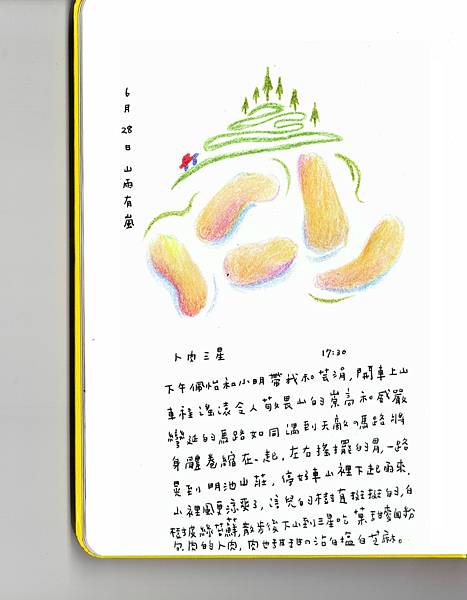 6月28日 山雨有嵐
卜肉三星 17:30
下午佩怡和小明帶我和芸涓,開車上山
車程遙遠令人敬畏山的崇高和威嚴
彎延的馬路如同遇到天敵的馬路將
身體卷縮在一起。左右搖擺的胃,一路
晃到明池山莊,停好車山裡下起雨來,
山裡風更涼爽了,這兒的樹直斑斑的,白
樹皮綠苔蘚,散步後下山到三星吃 甜麵粉
包肉的卜肉,肉也甜甜的沾白塩白芝麻。